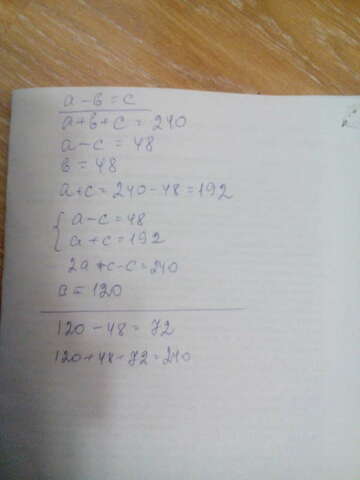 a - в = c
a + в + c = 240
a - c = 48
в = 48
a + c = 240 - 48 = 192
{ a - c = 48
a + c = 192
2a + c - c = 240
a = 120
120 - 48 = 72
120 + 48 + 72 = 240